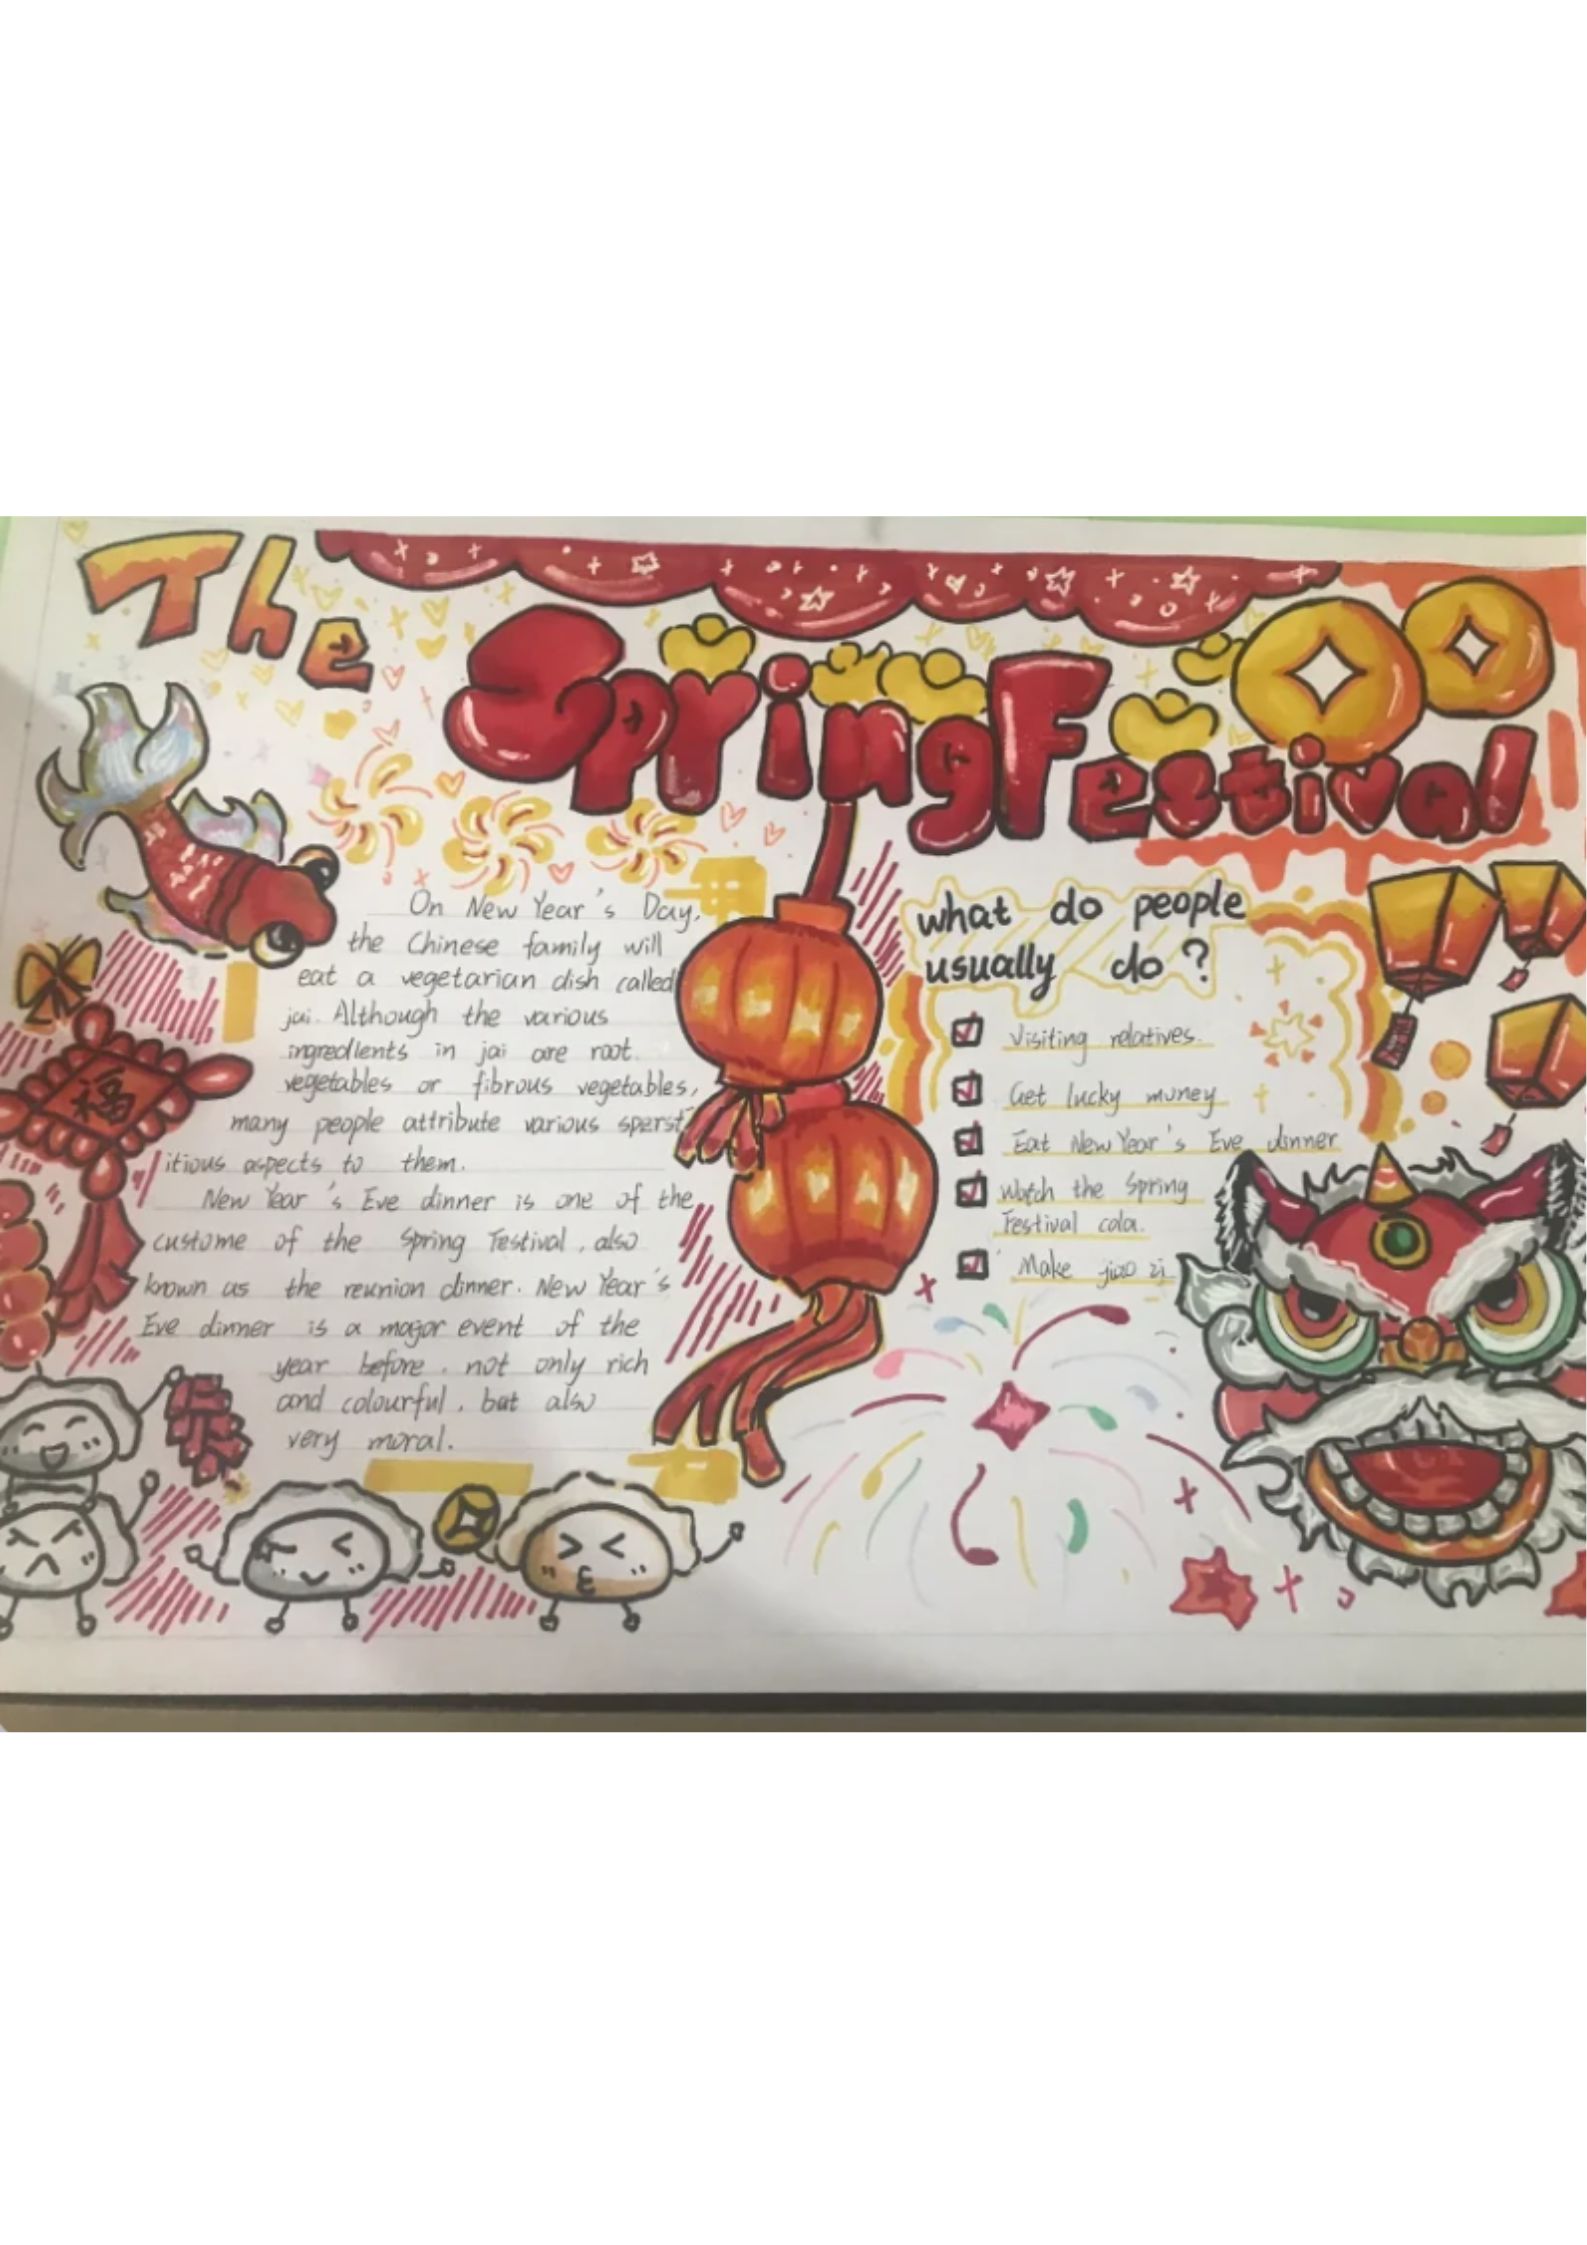 The
Spring Festival
On New Year's Day,
the Chinese family will
eat a vegetarian dish called
jai. Although the various
ingredients in jai are root
vegetables or fibrous vegetables,
many people attribute various sperst
itious aspects to them.
New Year's Eve dinner is one of the
custome of the Spring Festival, also
known as the reunion dinner. New Year's
Eve dinner is a magor event of the
year before, not only rich
and colourful, but also
very moral.
福
what do people
usually do?
Visiting relatives.
Get lucky money
Eat New Year's Eve dinner
Watch the Spring
Festival cala.
Make jiao zi